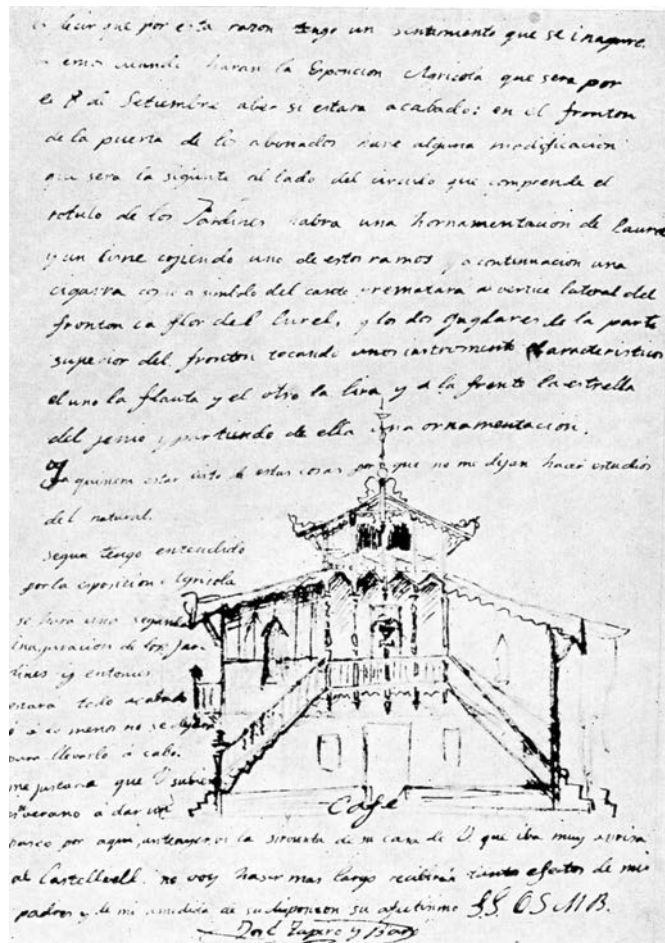 es decir que por esta razon tengo un sentimento que se inagure.
cuando haran la Esposicion Agricola que sera por
el 8 al Setiembre aber si estara acabado: en el fronton
de la puerta de los abonados hare alguna modificacion
que sera la siguente al lado del circulo que comprende el
rotulo de los Jardines habra una hornamentacion de Laurel
y un cojiendo uno de estos ramos y a continuacion una
cigarra como a simbolo del canto rematara al vertice lateral del
fronton la flor del Lurel, y los dos Juglares de la parte
superior del fronton tocando unos instrumento Characteristicos
el uno la flauta y el otro la lira y a la frente la estrella
del jenio y partiendo de ella una ornamentacion.
Ya quisiera estar listo de estas cosas por que no me dejan hacer estudios
del natural.
segun tengo entendido
por la esposicion Agricola
se hara una segunda
inaguracion de los Jar-
dines y entonces
estara todo acabado
o a lo menos no se
para llevarlo á cabo.
me justaria que V subiera
este verano a dar un
paseo por aqui, la sirvienta de su casa de V. que iba muy aprisa
al Castellvell. no voy haser mas largo recibirán tantos efectos de mis
padres y de mi a medida de su disposicion su afectisimo S.S. Q S M B.
José Tapiro y Baró
Cafe